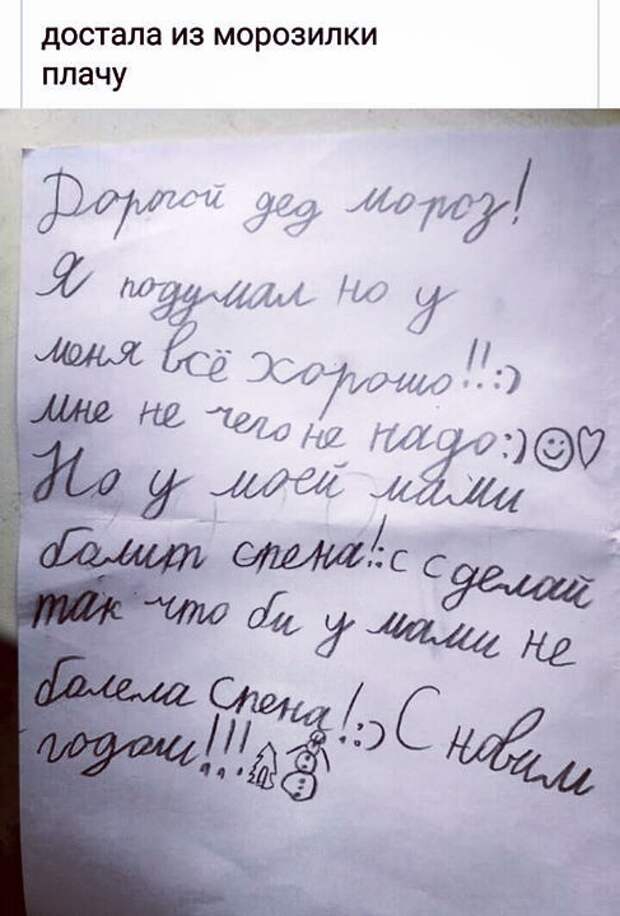 достала из морозилки
плачу
Дорогой дед мороз!
Я подумал но у
меня всё хорошо!!:)
мне не чего не надо:)
Но у моей мами
балит спена!:с сделай
так что би у мами не
балела Спена!:) С новим
годом!!!